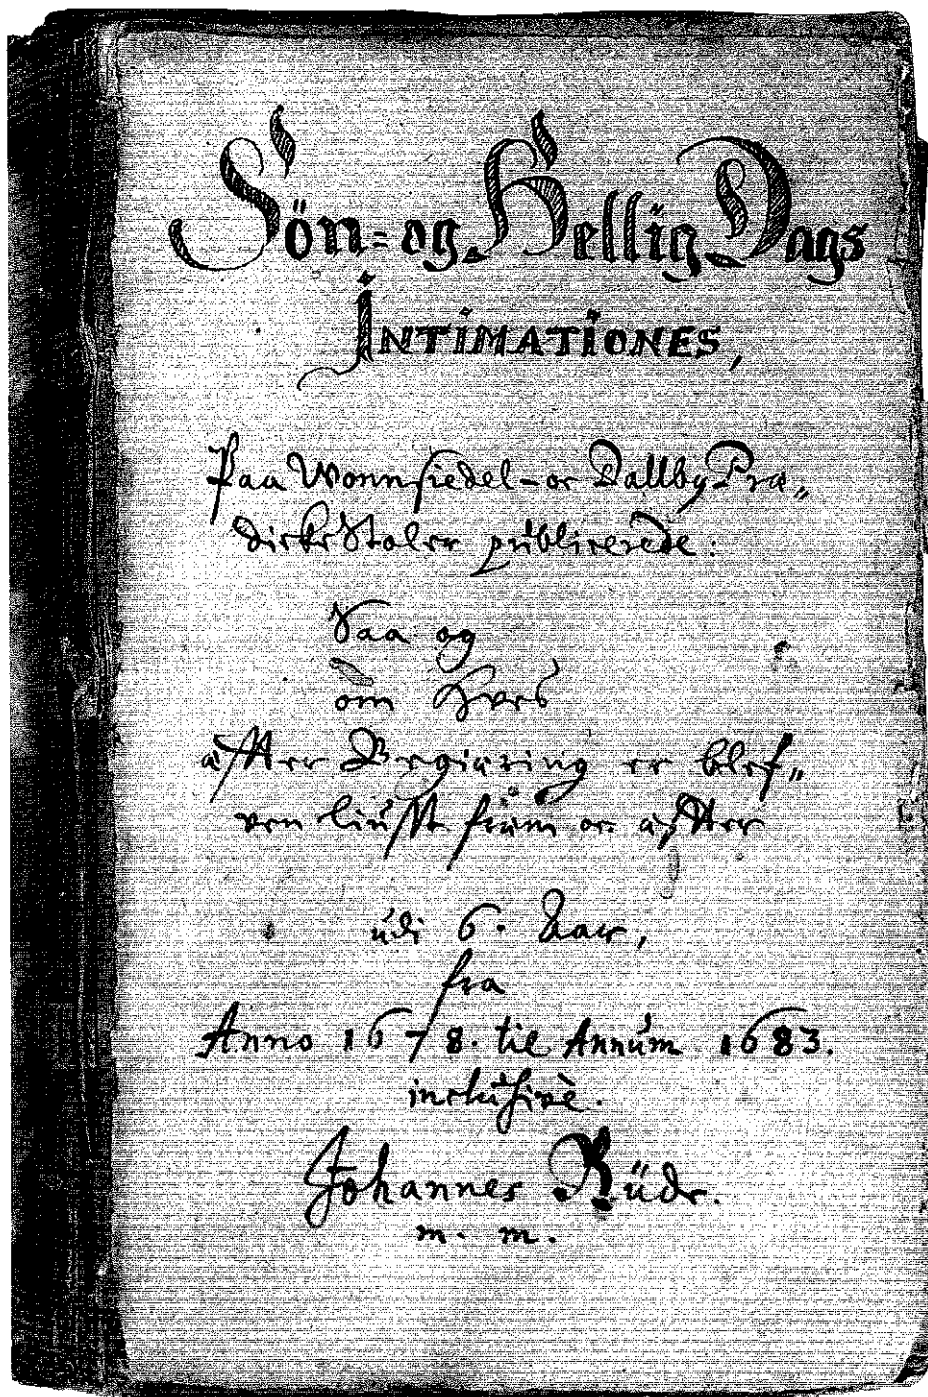 Sön=og Hellig Dags
INTIMATIONES,
Paa Wonnsiedel-oc Dallby Præ„
dicke Stoler publicerede:
Saa og
om Hves
effter Begiering er blef„
ven liust frem oc effter
udi 6. Aar,
fra
Anno 1678. til Annum 1683.
inclusivè.
Johannes Rüde.
m. m.